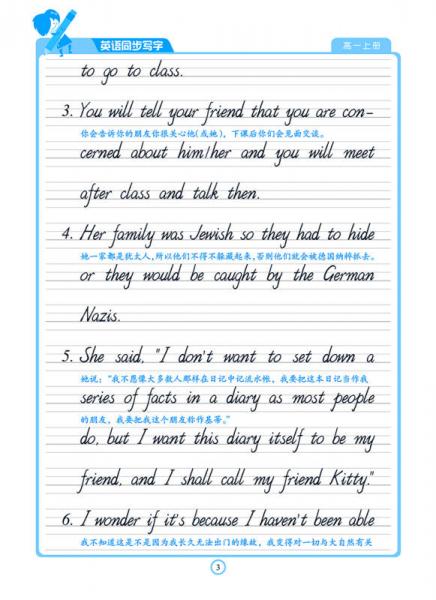 英语同步写字
高一上册
to go to class.
3. You will tell your friend that you are con-
你会告诉你的朋友你很关心他(或她)，下课后你们会见面交谈。
cerned about him/her and you will meet
after class and talk then.
4. Her family was Jewish so they had to hide
她一家都是犹太人，所以他们不得不躲藏起来，否则他们就会被德国纳粹抓去。
or they would be caught by the German
Nazis.
5. She said, "I don't want to set down a
她说："我不愿像大多数人那样在日记中记流水帐，我要把这本日记当作我
series of facts in a diary as most people
的朋友，我要把我这个朋友称作基蒂。"
do, but I want this diary itself to be my
friend, and I shall call my friend Kitty."
6. I wonder if it's because I haven't been able
我不知道这是不是因为我长久无法出门的缘故，我变得对一切与大自然有关
3